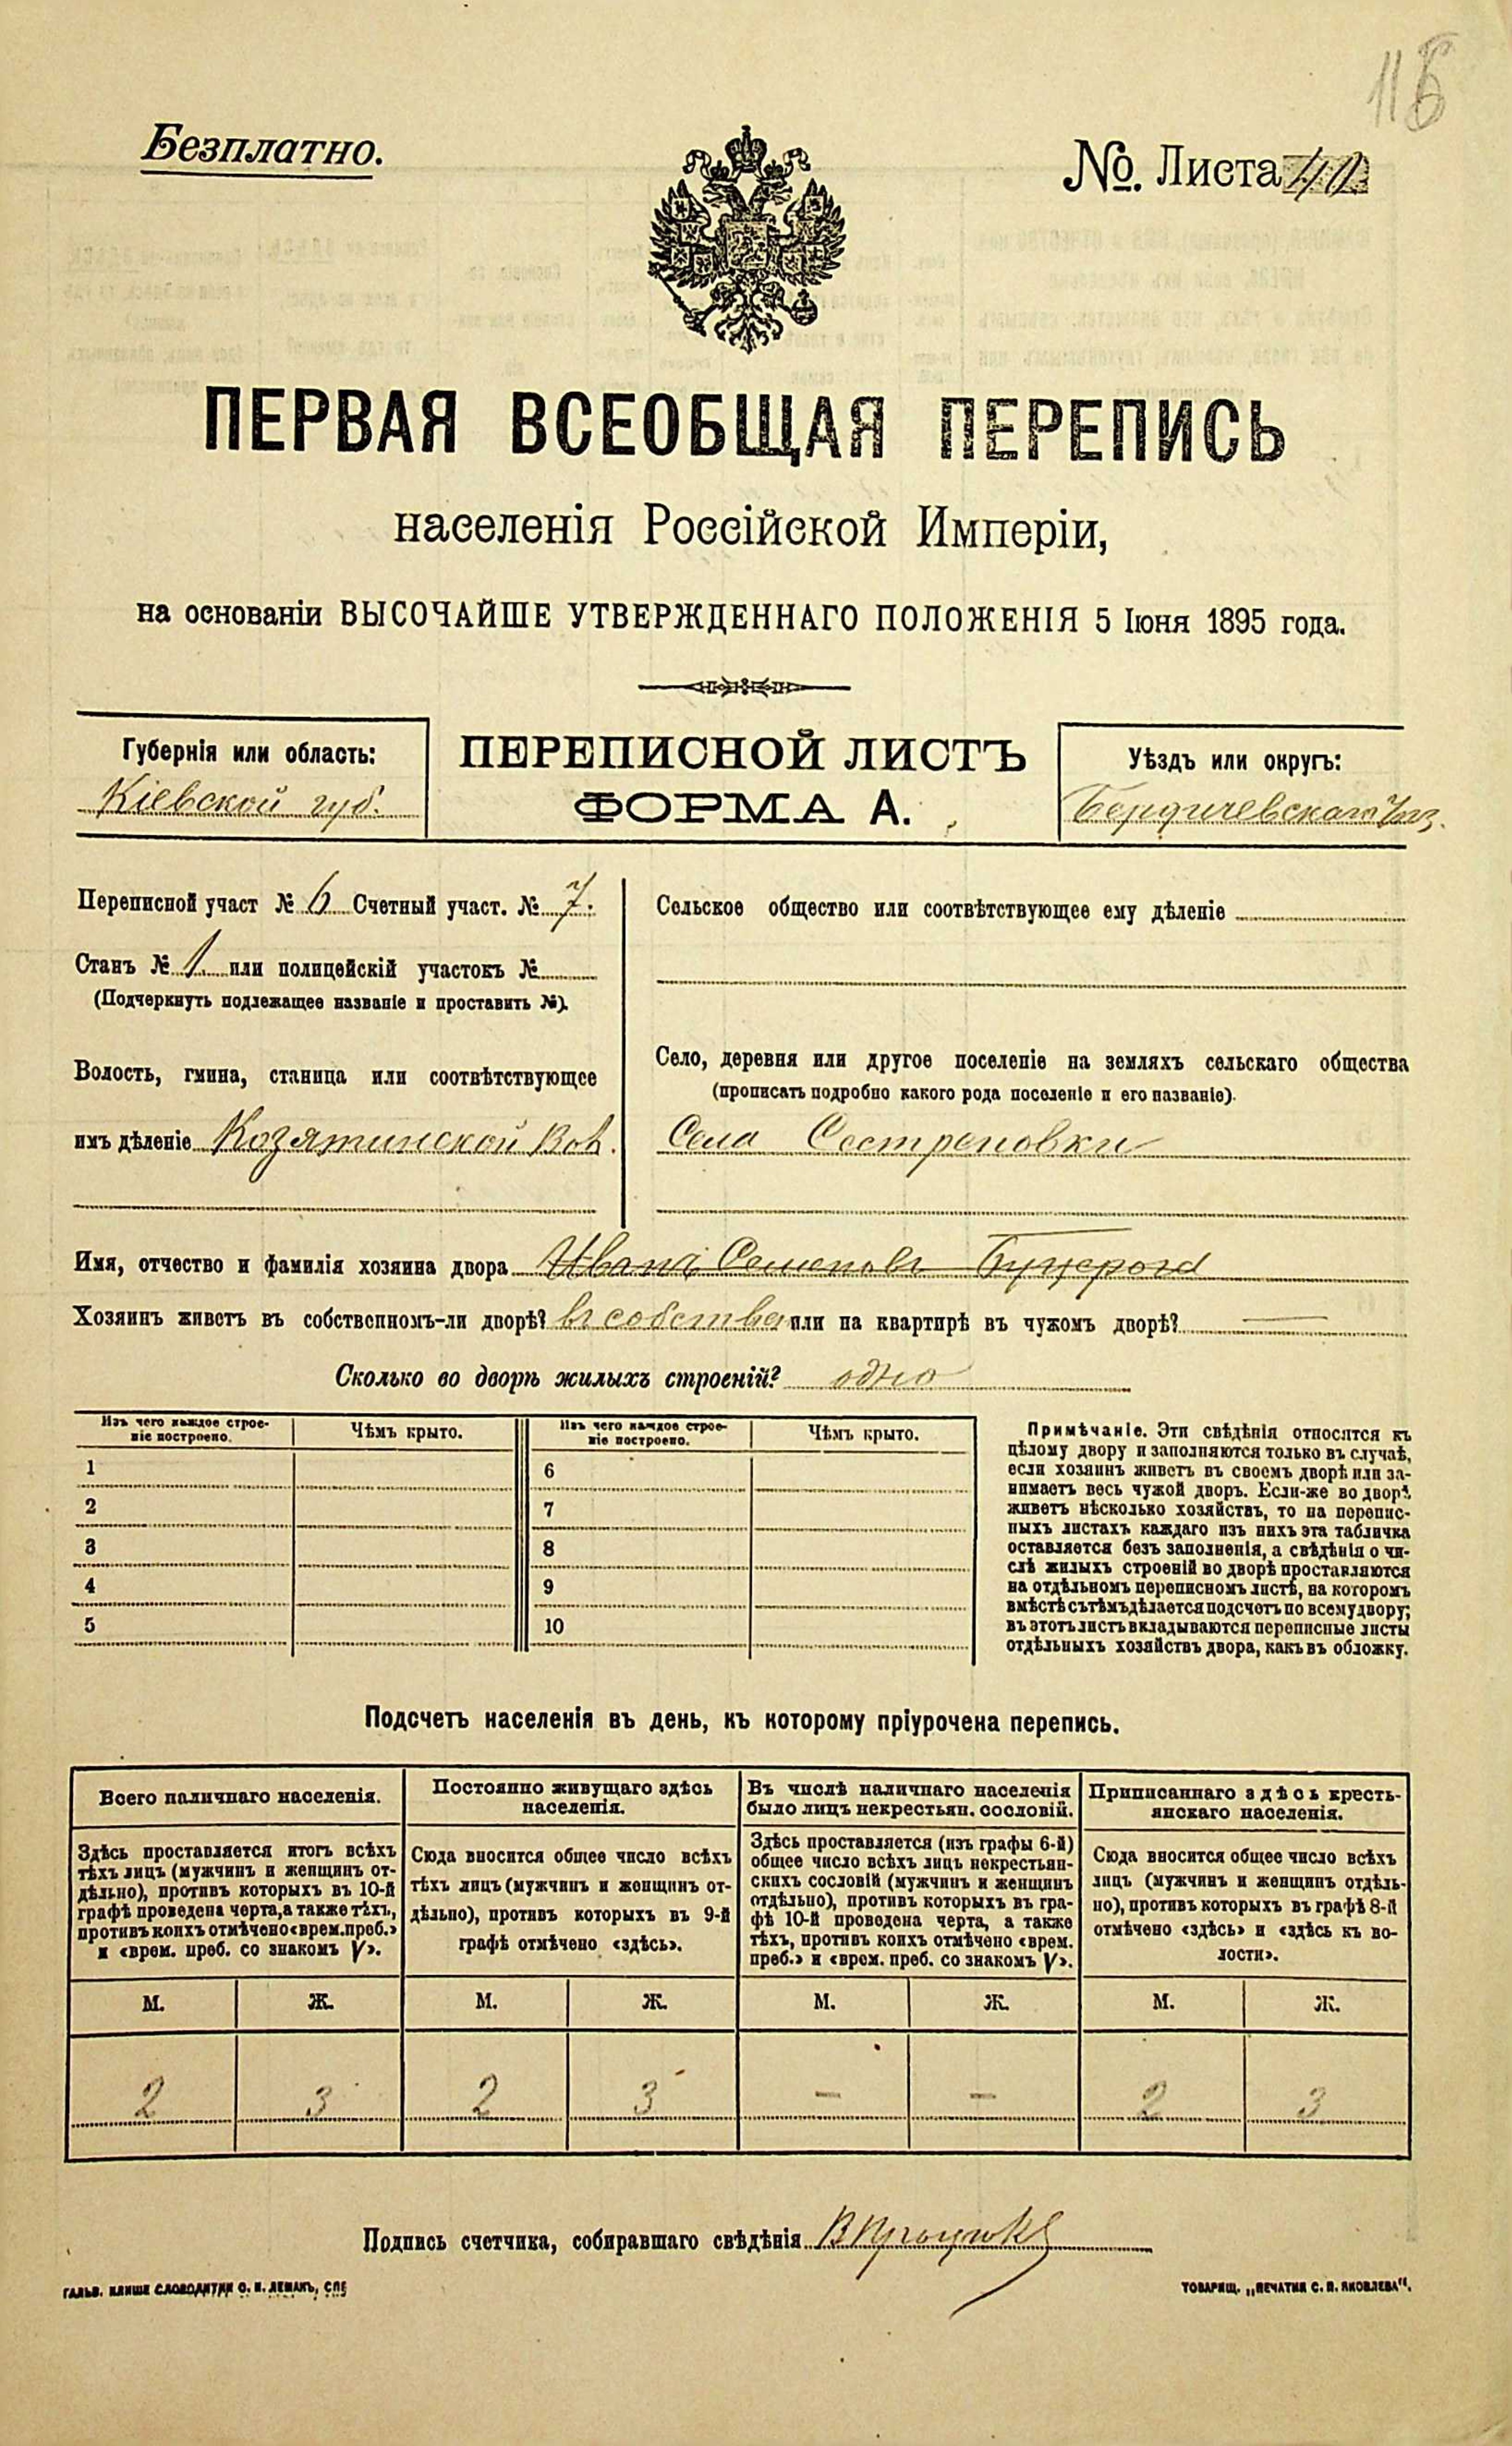 116
Безплатно.
№. Листа 40
ПЕРВАЯ ВСЕОБЩАЯ ПЕРЕПИСЬ
населенія Россійской Имперіи,
на основаніи ВЫСОЧАЙШЕ УТВЕРЖДЕННАГО ПОЛОЖЕНІЯ 5 Іюня 1895 года.
Губернія или область:
Кіевской губ.
ПЕРЕПИСНОЙ ЛИСТЪ
ФОРМА А.
Уѣздъ или округъ:
Бердичевскаго Уѣз.
Переписной участ № 6 Счетный участ. № 7.
Станъ № 1. или полицейскій участокъ №
(Подчеркнуть подлежащее названіе и проставить №).
Волость, гмина, станица или соотвѣтствующее
имъ дѣленіе Козятинской Вол.
Сельское общество или соотвѣтствующее ему дѣленіе
Село, деревня или другое поселеніе на земляхъ сельскаго общества
(прописать подробно какого рода поселеніе и его названіе).
Села Сестреновки
Имя, отчество и фамилія хозяина двора Иванъ Семеновъ
Хозяинъ живетъ въ собственномъ-ли дворѣ? въ собствен или на квартирѣ въ чужомъ дворѣ? —
Сколько во дворѣ жилыхъ строеній? одно
Изъ чего каждое строе-
ніе построено.
Чѣмъ крыто.
Изъ чего каждое строе-
ніе построено.
Чѣмъ крыто.
1 6
2 7
3 8
4 9
5 10
Примѣчаніе. Эти свѣдѣнія относятся къ
цѣлому двору и заполняются только въ случаѣ,
если хозяинъ живетъ въ своемъ дворѣ или за-
нимаетъ весь чужой дворъ. Если-же во дворѣ
живетъ нѣсколько хозяйствъ, то на перепис-
ныхъ листахъ каждаго изъ нихъ эта табличка
оставляется безъ заполненія, а свѣдѣнія о чи-
слѣ жилыхъ строеній во дворѣ проставляются
на отдѣльномъ переписномъ листѣ, на которомъ
вмѣстѣ съ тѣмъ дѣлается подсчетъ по всему двору;
въ этотъ листъ вкладываются переписные листы
отдѣльныхъ хозяйствъ двора, какъ въ обложку.
Подсчетъ населенія въ день, къ которому пріурочена перепись.
Всего наличнаго населенія.
Здѣсь проставляется итогъ всѣхъ
тѣхъ лицъ (мужчинъ и женщинъ от-
дѣльно), противъ которыхъ въ 10-й
графѣ проведена черта, а также тѣхъ,
противъ коихъ отмѣчено «врем. преб.»
и «врем. преб. со знакомъ V».
Постоянно живущаго здѣсь
населенія.
Сюда вносится общее число всѣхъ
тѣхъ лицъ (мужчинъ и женщинъ от-
дѣльно), противъ которыхъ въ 9-й
графѣ отмѣчено «здѣсь».
Въ числѣ наличнаго населенія
было лицъ некрестьян. сословій.
Здѣсь проставляется (изъ графы 6-й)
общее число всѣхъ лицъ некрестьян-
скихъ сословій (мужчинъ и женщинъ
отдѣльно), противъ которыхъ въ гра-
фѣ 10-й проведена черта, а также
тѣхъ, противъ коихъ отмѣчено «врем.
преб.» и «врем. преб. со знакомъ V».
Приписаннаго здѣсь кресть-
янскаго населенія.
Сюда вносится общее число всѣхъ
лицъ (мужчинъ и женщинъ отдѣль-
но), противъ которыхъ въ графѣ 8-й
отмѣчено «здѣсь» и «здѣсь къ во-
лости».
М. Ж. М. Ж. М. Ж. М. Ж.
2 3 2 3 — — 2 3
Подпись счетчика, собиравшаго свѣдѣнія
ГАЛЬВ. КЛИШЕ СЛОВОЛИТНИ О. И. ЛЕМАНЪ, СПБ
ТОВАРИЩ. „ПЕЧАТНЯ С. П. ЯКОВЛЕВА“.